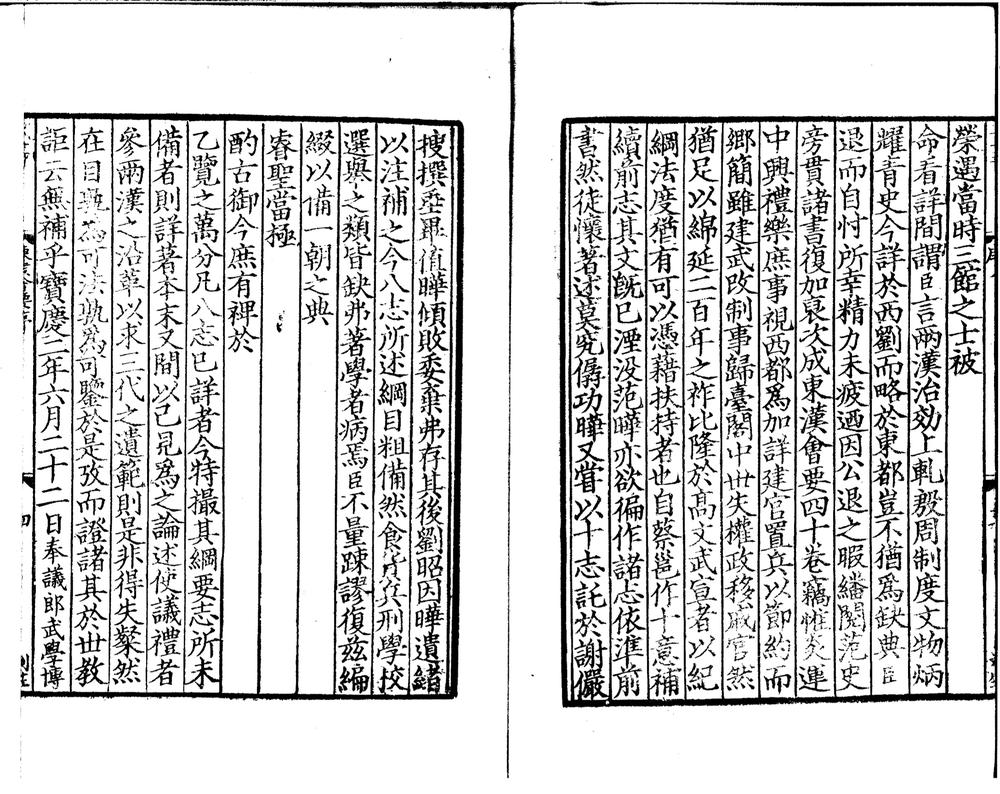 榮遇當時三館之士被
命看詳間謂臣言兩漢治効上軋殷周制度文物炳
耀青史今詳於西劉而略於東都豈不猶爲缺典臣
退而自忖所幸精力未疲迺因公退之暇繙閱范史
旁貫諸書復加裒次成東漢會要四十卷竊惟炎運
中興禮樂庶事視西都爲加詳建官置兵以節約而
鄉簡雖建武改制事歸臺閣中世失權政移戚宦然
猶足以綿延二百年之祚比隆於髙文武宣者以紀
綱法度猶有可以憑藉扶持者也自蔡邕作十意補
續前志其文旣已湮没范曄亦欲徧作諸志依準前
書然徒懷著述莫究儁功曄又甞以十志託於謝儼
搜撰垂畢偝曄傾敗委棄弗存其後劉昭因曄遺緒
以注補之今八志所述綱目粗備然食貨兵刑學校
選舉之類皆缺弗著學者病焉臣不量踈謬復兹編
綴以備一朝之典
睿聖當極
酌古御今庶有裨於
乙覽之萬分凡八志已詳者今特撮其綱要志所未
備者則詳著本末又間以己見爲之論述使議禮者
參兩漢之沿革以求三代之遺範則是非得失粲然
在目孰爲可法孰爲可鑒於是攷而證諸其於世教
詎云無補乎寶慶二年六月二十二日奉議郎武學博
四